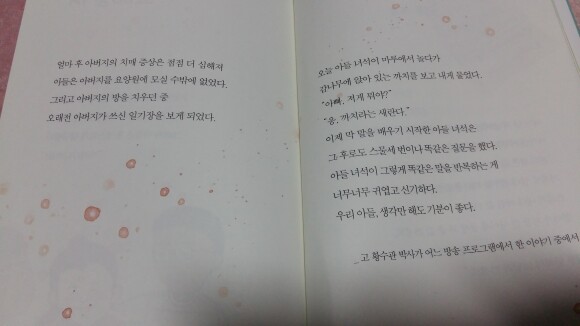 얼마 후 아버지의 치매 증상은 점점 더 심해져
아들은 아버지를 요양원에 모실 수밖에 없었다.
그리고 아버지의 방을 치우던 중
오래전 아버지가 쓰신 일기장을 보게 되었다.
오늘 아들 녀석이 마루에서 놀다가
감나무에 앉아 있는 까치를 보고 내게 물었다.
"아빠, 저게 뭐야?"
"응, 까치라는 새란다."
이제 막 말을 배우기 시작한 아들 녀석은
그 후로도 스물세 번이나 똑같은 질문을 했다.
아들 녀석이 그렇게 똑같은 말을 반복하는 게
너무너무 귀엽고 신기하다.
우리 아들, 생각만 해도 기분이 좋다.
_ 고 황수관 박사가 어느 방송 프로그램에서 한 이야기 중에서